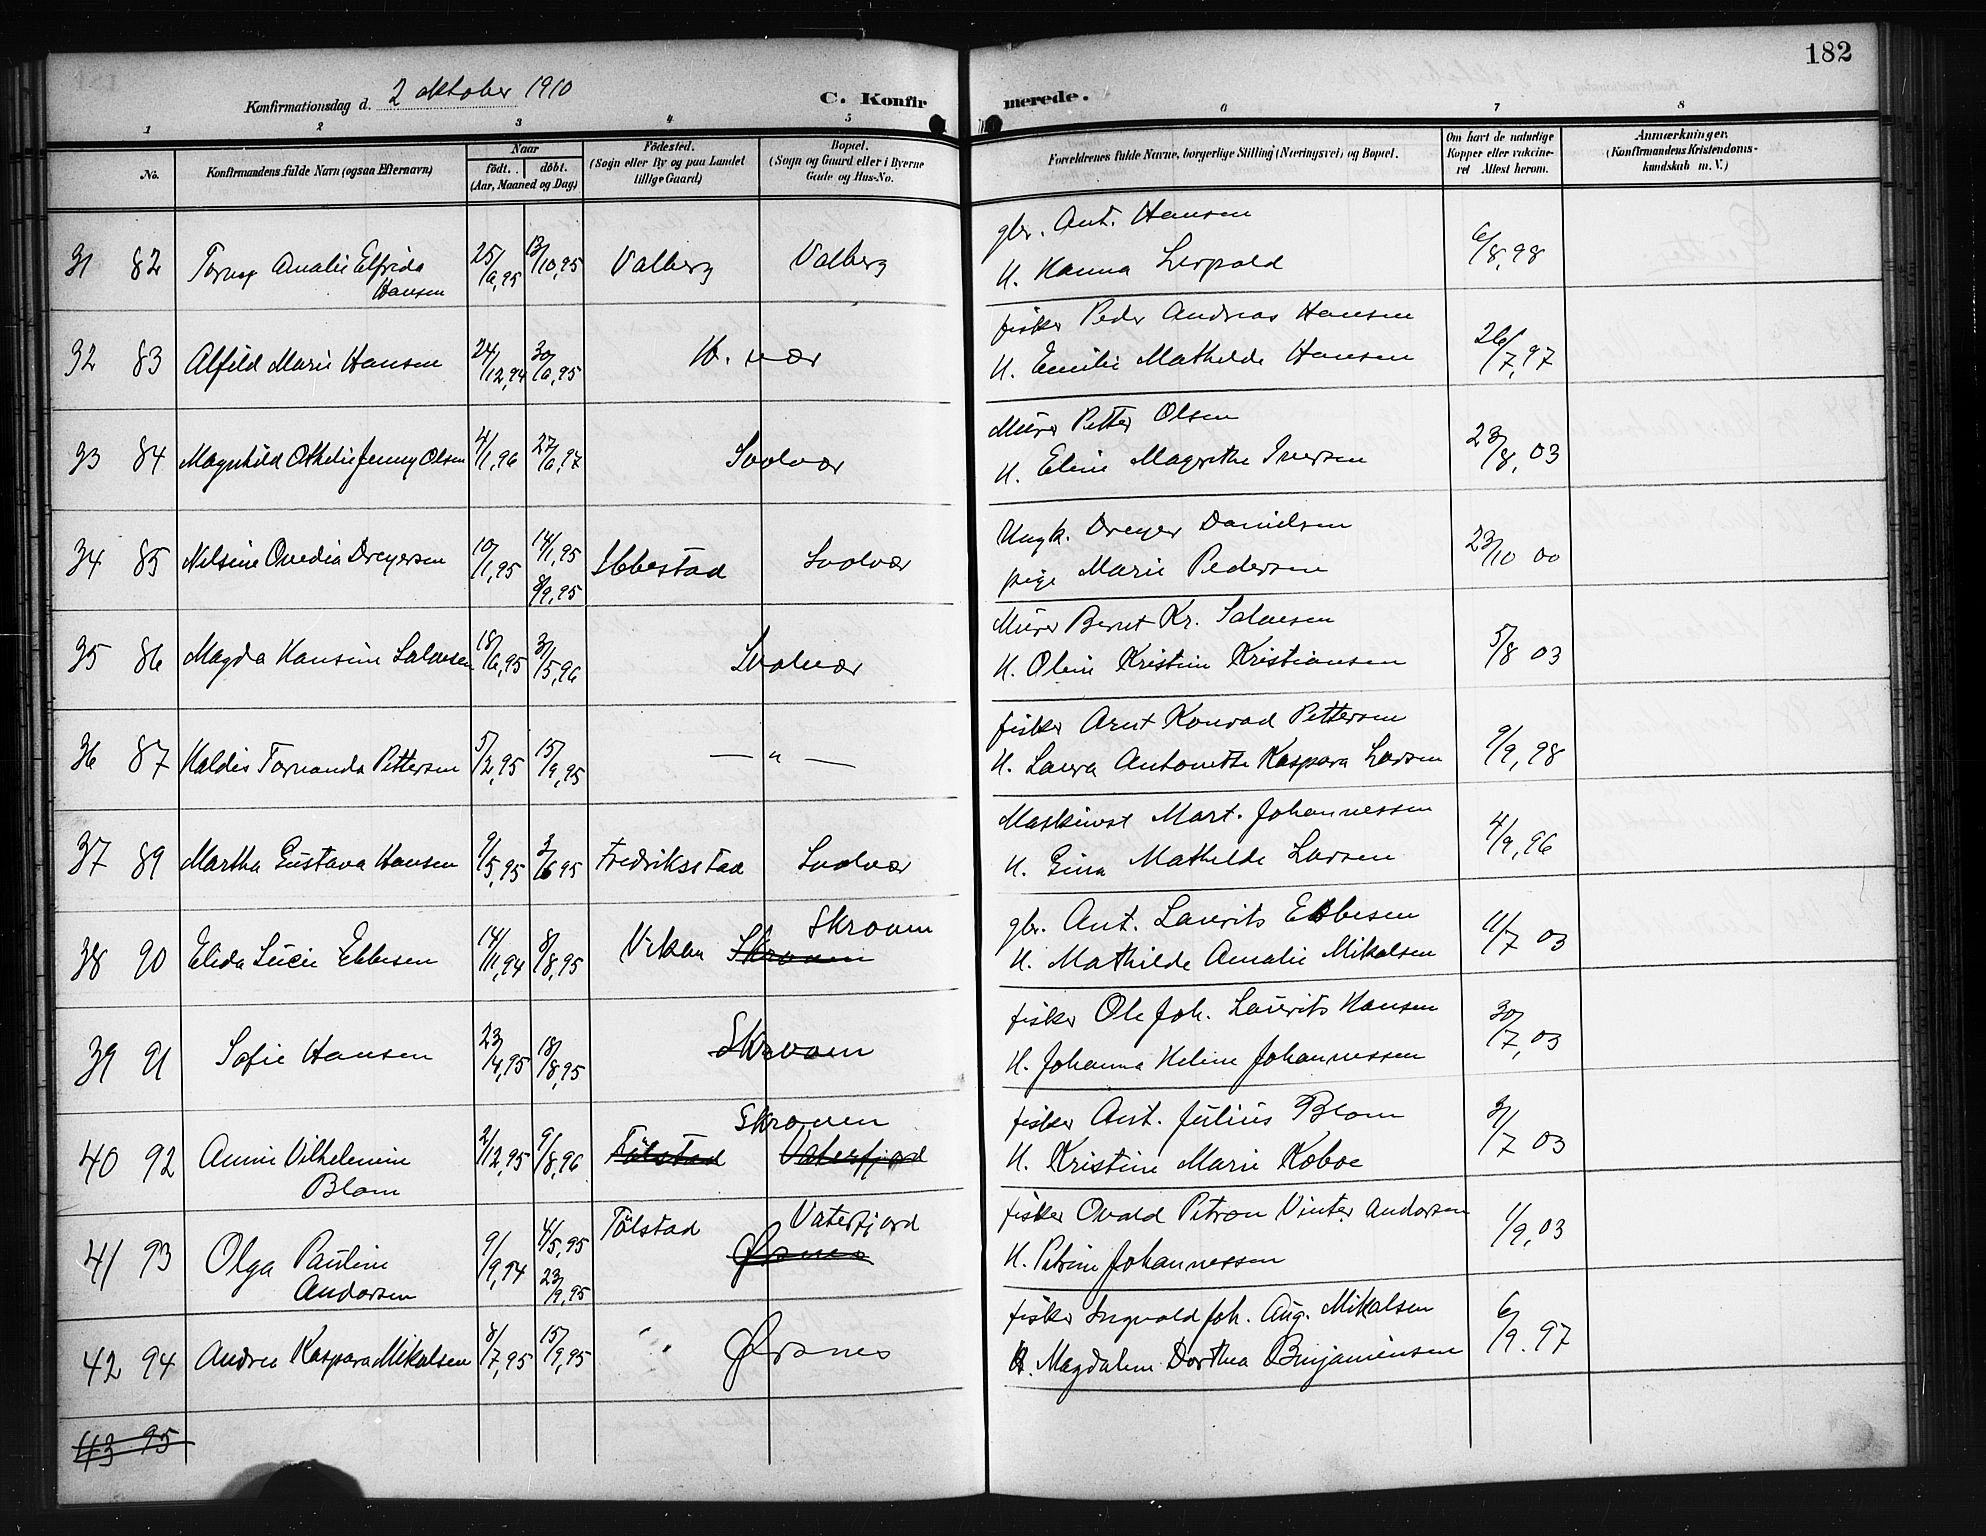 182
Konfirmationsdag d. 2 oktober 1910
C. Konfirmerede.
1 2 3 4 5 6 7 8
No. Konfirmandens fulde Navn (ogsaa Efternavn) Naar født. døbt. (Aar, Maaned og Dag) Fødested. (Sogn eller By og paa Landet tillige Gaard) Bopæl. (Sogn og Gaard eller i Byerne Gade og Hus-No. Forældrenes fulde Navne, borgerlige Stilling (Næringsvei) og Bopæl. Om havt de naturlige Kopper eller vaccineret Attest herom. Anmærkninger. (Konfirmandens Kristendomskundskab m. V.)
31 82 Amalie Elfrida Hansen 25/6,95 13/10,95 Valberg Valberg
gbr. Ant. Hansen
H. Hanna Leopold 6/8,98
32 83 Alfild Marie Hansen 24/12,94 30/6,95 H. vær
fisker Peder Andreas Hansen
H. Emilie Mathilde Hansen 26/7,97
33 84 Magnhild Othelie Jenny Olsen 4/1,96 27/6,97 Svolvær
Mürer Petter Olsen
H. Eline Magrethe Iversen 23/8,03
34 85 Nilsine Ovedia Dreyersen 10/1,95 14/1,95 8/9,95 Ibbestad Svolvær
Ungk. Dreyer Danielsen
pige Marie Pedersen 23/10 00
35 86 Magda Hansine Salvesen 18/6,95 3/5,96 Svolvær
Mürer Bernt Kr. Salvesen
H. Oline Kristine Kristiansen 5/8 03
36 87 Haldis Tornanda Pettersen 5/2,95 15/9,95 — " —
fisker Arnt Konrad Pettersen
H. Laura Antonette Kaspara Larsen 9/9,98
37 89 Martha Gustava Hansen 9/5,95 3/6 95 Fredriksstad Svolvær
Maskinist Mart. Johannessen
H. Gina Mathilde Larsen 4/9,96
38 90 Elida Lücie Ebbesen 14/11,94 8/8,95 Vikan Skroven Skroven
gbr. Ant. Laurits Ebbesen
H. Mathilde Amalie Mikalsen 11/7 03
39 91 Sofie Hansen 23/4,95 18/8,95 Skroven
fisker Ole Joh. Laurits Hansen
H. Johanna Heline Johannessen 30/7,03
40 92 Annie Vilhelmine Blom 2/12,95 9/8,96 Tölstad Skroven Vaterfjord
fisker Ant. Jülius Blom
H. Kristine Marie Koboe 3/7 03
41 93 Olga Pauline Andorsen 9/9,94 4/5,95 23/9,95 Tölstad Vaterfjord Ørsnes
fisker Ovald Petron Vinter Andorsen
H. Petrine Johannessen 1/9,03
42 94 Andrea Kaspara Mikalsen 8/7,95 15/9,95 " Ørsnes
fisker Ingvald Joh. Aug. Mikalsen
H. Magdalene Dorthea Binjaminsen 6/9.97
43 95